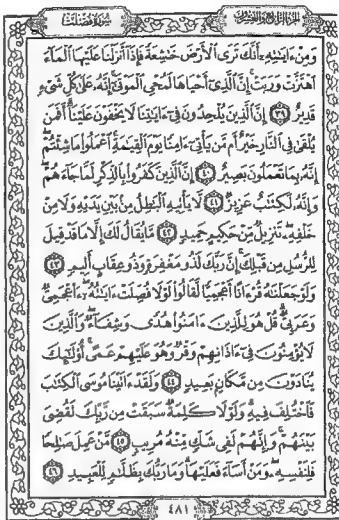 الجزء الرابع والعشرون سورة فصلت
وَمِنْ ءَايَٰتِهِۦٓ أَنَّكَ تَرَى ٱلْأَرْضَ خَٰشِعَةً فَإِذَآ أَنزَلْنَا عَلَيْهَا ٱلْمَآءَ
ٱهْتَزَّتْ وَرَبَتْ إِنَّ ٱلَّذِىٓ أَحْيَاهَا لَمُحْىِ ٱلْمَوْتَىٰٓ إِنَّهُۥ عَلَىٰ كُلِّ شَىْءٍ
قَدِيرٌ ٣٩ إِنَّ ٱلَّذِينَ يُلْحِدُونَ فِىٓ ءَايَٰتِنَا لَا يَخْفَوْنَ عَلَيْنَآ أَفَمَن
يُلْقَىٰ فِى ٱلنَّارِ خَيْرٌ أَم مَّن يَأْتِىٓ ءَامِنًا يَوْمَ ٱلْقِيَٰمَةِ ٱعْمَلُوا۟ مَا شِئْتُمْ
إِنَّهُۥ بِمَا تَعْمَلُونَ بَصِيرٌ ٤٠ إِنَّ ٱلَّذِينَ كَفَرُوا۟ بِٱلذِّكْرِ لَمَّا جَآءَهُمْ
وَإِنَّهُۥ لَكِتَٰبٌ عَزِيزٌ ٤١ لَّا يَأْتِيهِ ٱلْبَٰطِلُ مِنۢ بَيْنِ يَدَيْهِ وَلَا مِنْ
خَلْفِهِۦ تَنزِيلٌ مِّنْ حَكِيمٍ حَمِيدٍ ٤٢ مَّا يُقَالُ لَكَ إِلَّا مَا قَدْ قِيلَ
لِلرُّسُلِ مِن قَبْلِكَ إِنَّ رَبَّكَ لَذُو مَغْفِرَةٍ وَذُو عِقَابٍ أَلِيمٍ ٤٣
وَلَوْ جَعَلْنَٰهُ قُرْءَانًا أَعْجَمِيًّا لَّقَالُوا۟ لَوْلَا فُصِّلَتْ ءَايَٰتُهُۥٓ ءَا۬عْجَمِىٌّ
وَعَرَبِىٌّ قُلْ هُوَ لِلَّذِينَ ءَامَنُوا۟ هُدًى وَشِفَآءٌ وَٱلَّذِينَ
لَا يُؤْمِنُونَ فِىٓ ءَاذَانِهِمْ وَقْرٌ وَهُوَ عَلَيْهِمْ عَمًى أُو۟لَٰٓئِكَ
يُنَادَوْنَ مِن مَّكَانٍۭ بَعِيدٍ ٤٤ وَلَقَدْ ءَاتَيْنَا مُوسَى ٱلْكِتَٰبَ
فَٱخْتُلِفَ فِيهِ وَلَوْلَا كَلِمَةٌ سَبَقَتْ مِن رَّبِّكَ لَقُضِىَ
بَيْنَهُمْ وَإِنَّهُمْ لَفِى شَكٍّ مِّنْهُ مُرِيبٍ ٤٥ مَّنْ عَمِلَ صَٰلِحًا
فَلِنَفْسِهِۦ وَمَنْ أَسَآءَ فَعَلَيْهَا وَمَا رَبُّكَ بِظَلَّٰمٍ لِّلْعَبِيدِ ٤٦
٤٨١